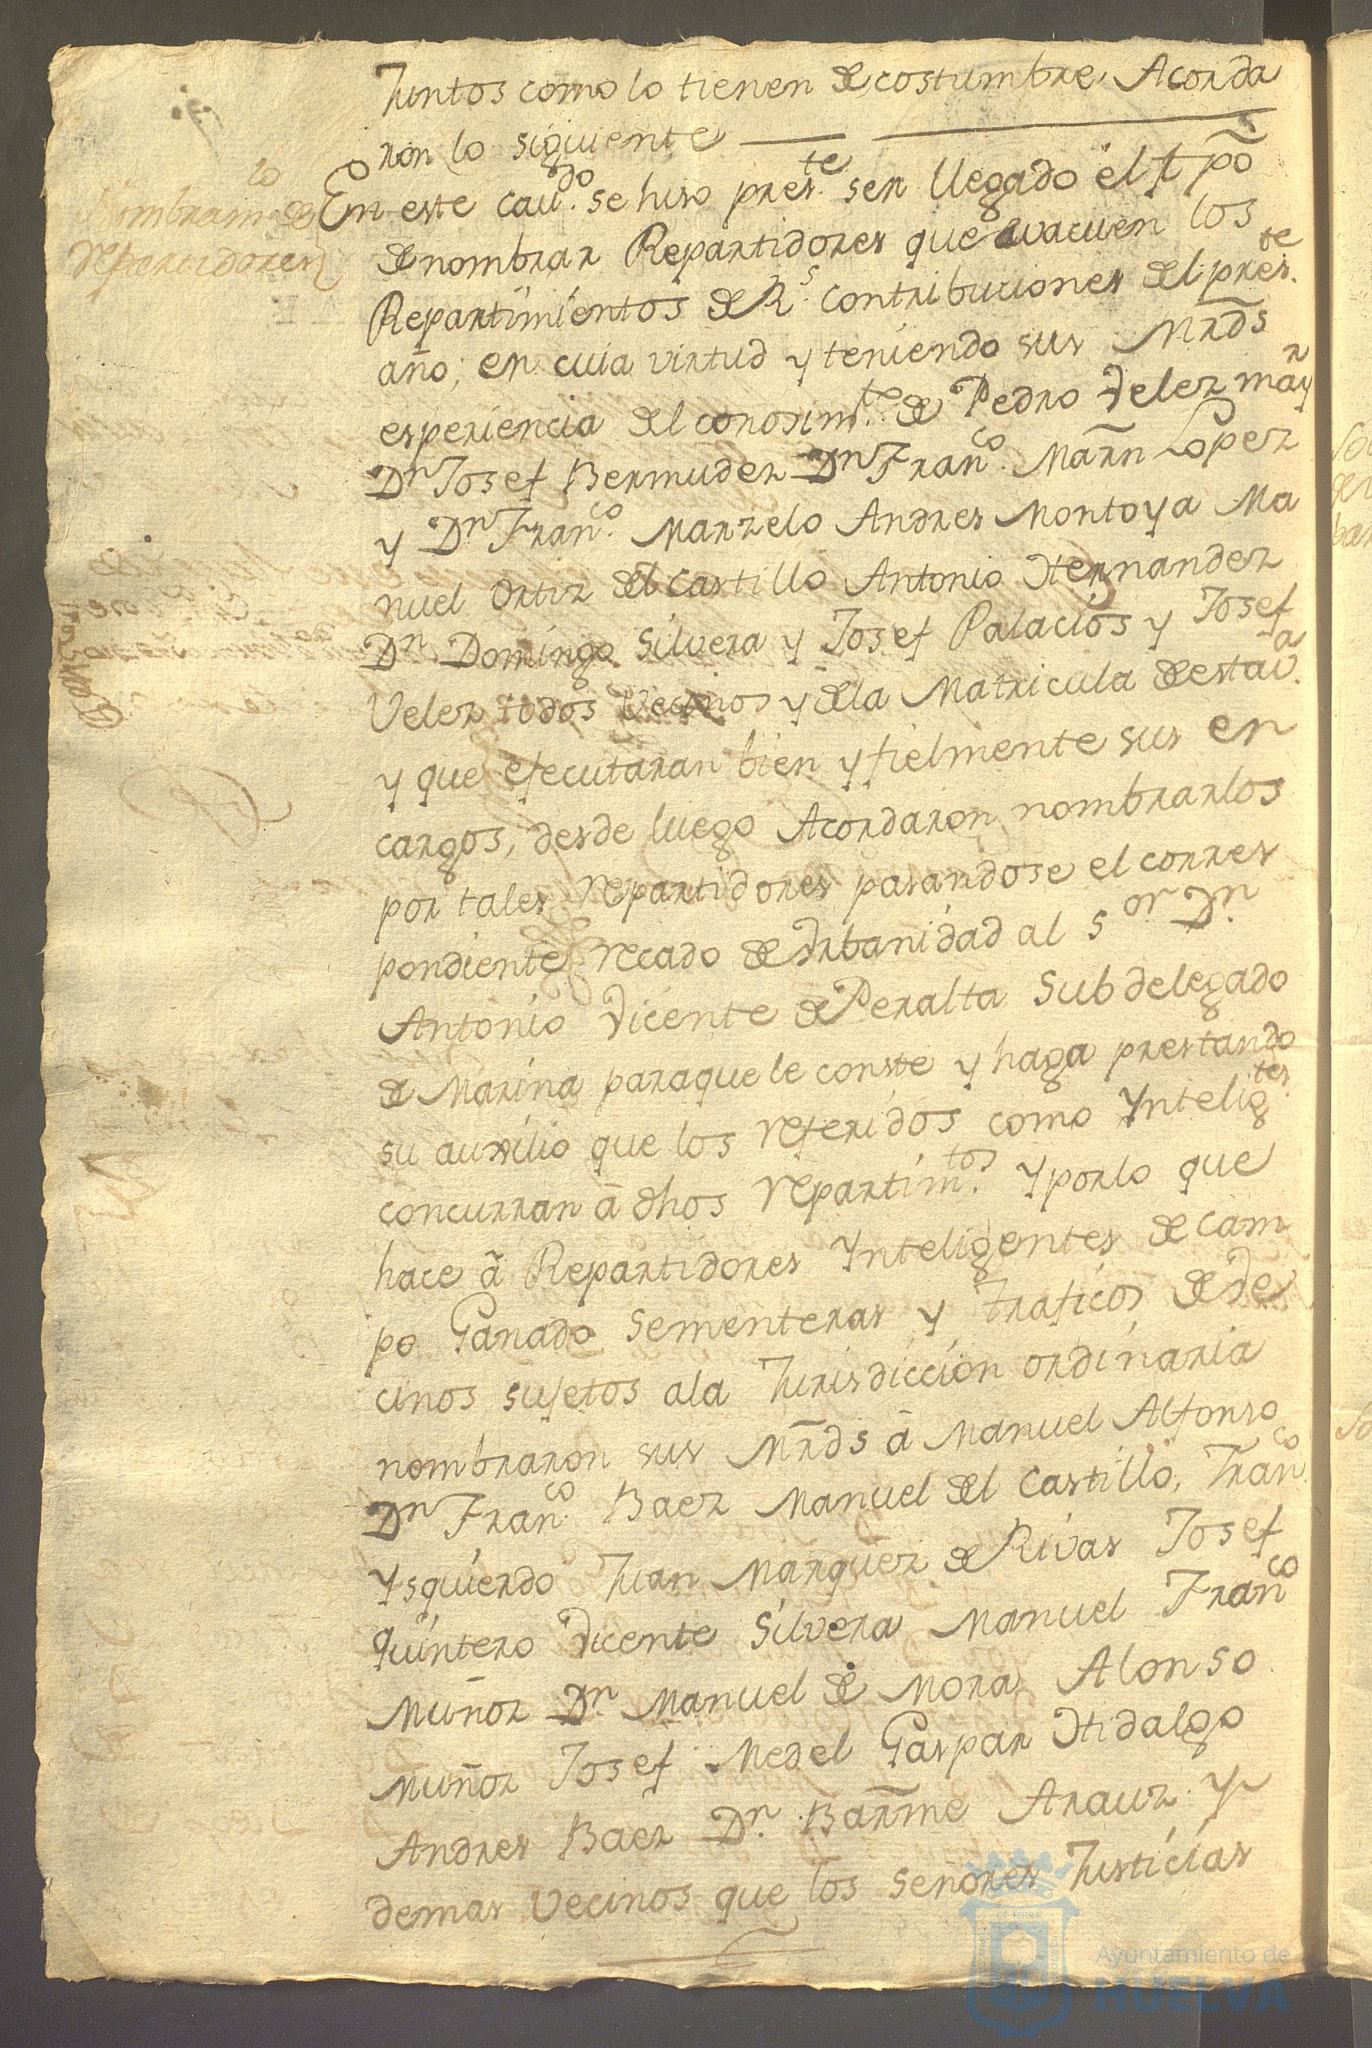 Juntos como lo tienen de costumbre, Acorda
ron lo siguiente
Nombram.to de
repartidores
En este cau.do se hiso pres.te ser llegado el tpõ
de nombrar Repartidores que evacuen los
Repartimientos de R.s contribuciones del pres.te
año; en cuia virtud y teniendo sus Mrds
esperiencia del conosim.to de Pedro Velez may.r
Dn Josef Bermudez Dn Fran.co Marñ Lopez
y Dn Fran.co Marzelo Andres Montoya Ma
nuel Ortiz del Castillo Antonio Hernandez
Dn Domingo Silvera y Josef Palacios y Josef
Velez todos Vecinos y de la Matricula de esta v.a
y que ejecutaran bien y fielmente sus en
cargos, desde luego Acordaron nombrarlos
por tales repartidores pasandose el corres
pondiente recado de Urbanidad al S.or Dn
Antonio Vicente de Peralta Subdelegado
de Marina paraque le conste y haga prestando
su auxilio que los referidos como Yntelig.tes
concurran â dhos repartim.tos Y por lo que
hace â Repartidores Ynteligentes de cam
po Ganado Sementeras y traficos de Ve
cinos sujetos ala Jurisdiccion ordinaria
nombraron sus Mrds â Manuel Alfonso
Dn Fran.co Baez Manuel del Castillo, Fran.co
Ysquierdo Juan Marquez de Rivas Josef
Quintero Vicente Silvera Manuel Fran.co
Muñoz Dn Manuel de Mora Alonso
Muñoz Josef Medel Gaspar Hidalgo
Andres Baez Dn Barme Arauz Y
demas Vecinos que los Señores Justicias
Ayuntamiento de
HUELVA